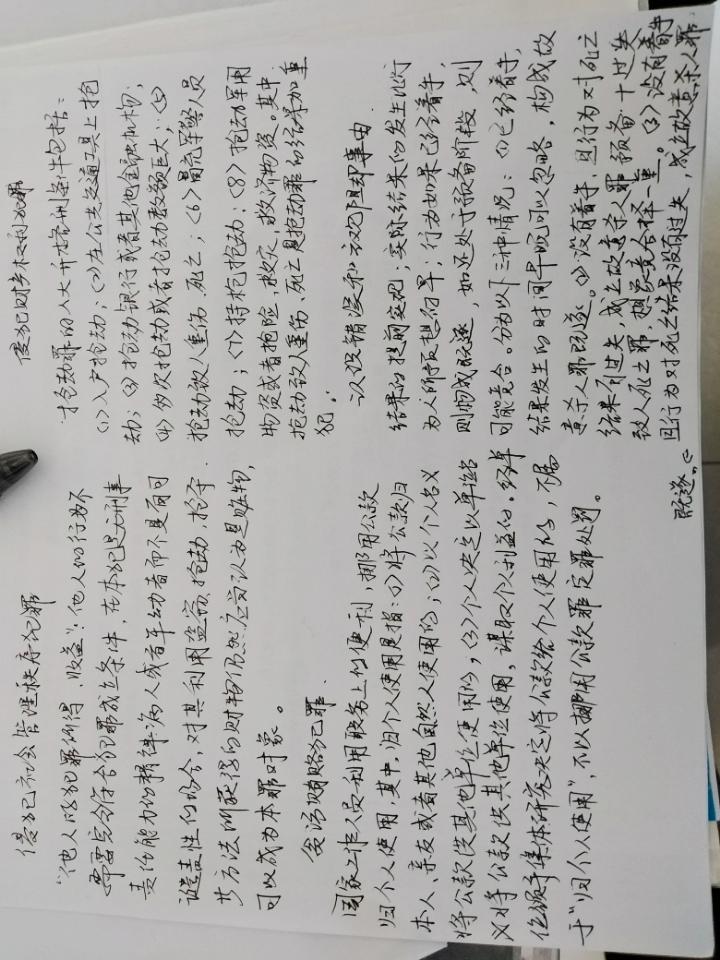 侵犯社会管理秩序犯罪
“他人以犯罪所得、收益”：他人的行为不
需要完全符合犯罪成立条件，在本犯是无刑事
责任能力的精神病人或者年幼者而不具有可
谴责性的场合，对其利用盗窃、抢劫、抢夺
等方法所获得的财物仍然应当认为是赃物，
可以成为本罪对象。
贪污贿赂犯罪
国家工作人员利用职务上的便利，挪用公款
归个人使用，其中，归个人使用是指：(1)将公款归
本人、亲友或者其他自然人使用的；(2)以个人名义
将公款供其他单位使用的，(3)个人决定以单位名
义将公款供其他单位使用，谋取个人利益的。经单
位领导集体研究决定将公款给个人使用的，不属
于“归个人使用”，不以挪用公款罪定罪处罚。
侵犯财产权利犯罪
抢劫罪的八大升格刑条件包括：
(1)入户抢劫；(2)在公共交通工具上抢
劫；(3)抢劫银行或者其他金融机构；
(4)多次抢劫或者抢劫数额巨大；(5)
抢劫致人重伤、死亡；(6)冒充军警人员
抢劫；(7)持枪抢劫；(8)抢劫军用
物资或者抢险、救灾、救济物资。其中
抢劫致人重伤、死亡是抢劫罪的结果加重
犯。
认识错误和方见阻却事由
结果的提前实现；实际结果的发生比行
为人所预想的早；行为如果已经着手，
则构成既遂，如还处于预备阶段，则
可能竞合。分为以下三种情况：(1)已经着手，
结果发生的时间早晚可以忽略，构成故
意杀人罪既遂。(2)没有着手，且行为对死亡
结果有过失，成立故意杀人罪预备+过失
致人死亡罪，想象竞合择一重。(3)没有着手
且行为对死亡结果没有过失，成立故意杀人罪
既遂。